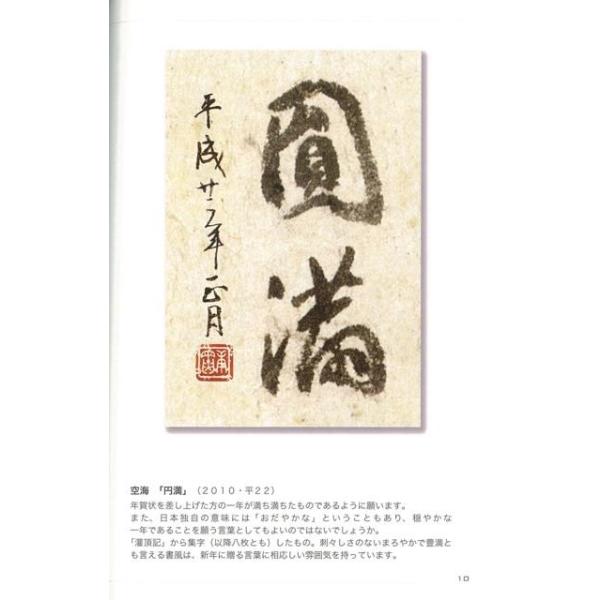 圓満
平成廿二年正月
空海　「円満」（２０１０・平２２）
年賀状を差し上げた方の一年が満ち満ちたものであるように願います。
また、日本独自の意味には「おだやかな」ということもあり、穏やかな
一年であることを願う言葉としてもよいのではないでしょうか。
「灌頂記」から集字（以降八枚とも）したもの。刺々しさのないまろやかで豊満と
も言える書風は、新年に贈る言葉に相応しい雰囲気を持っています。
10